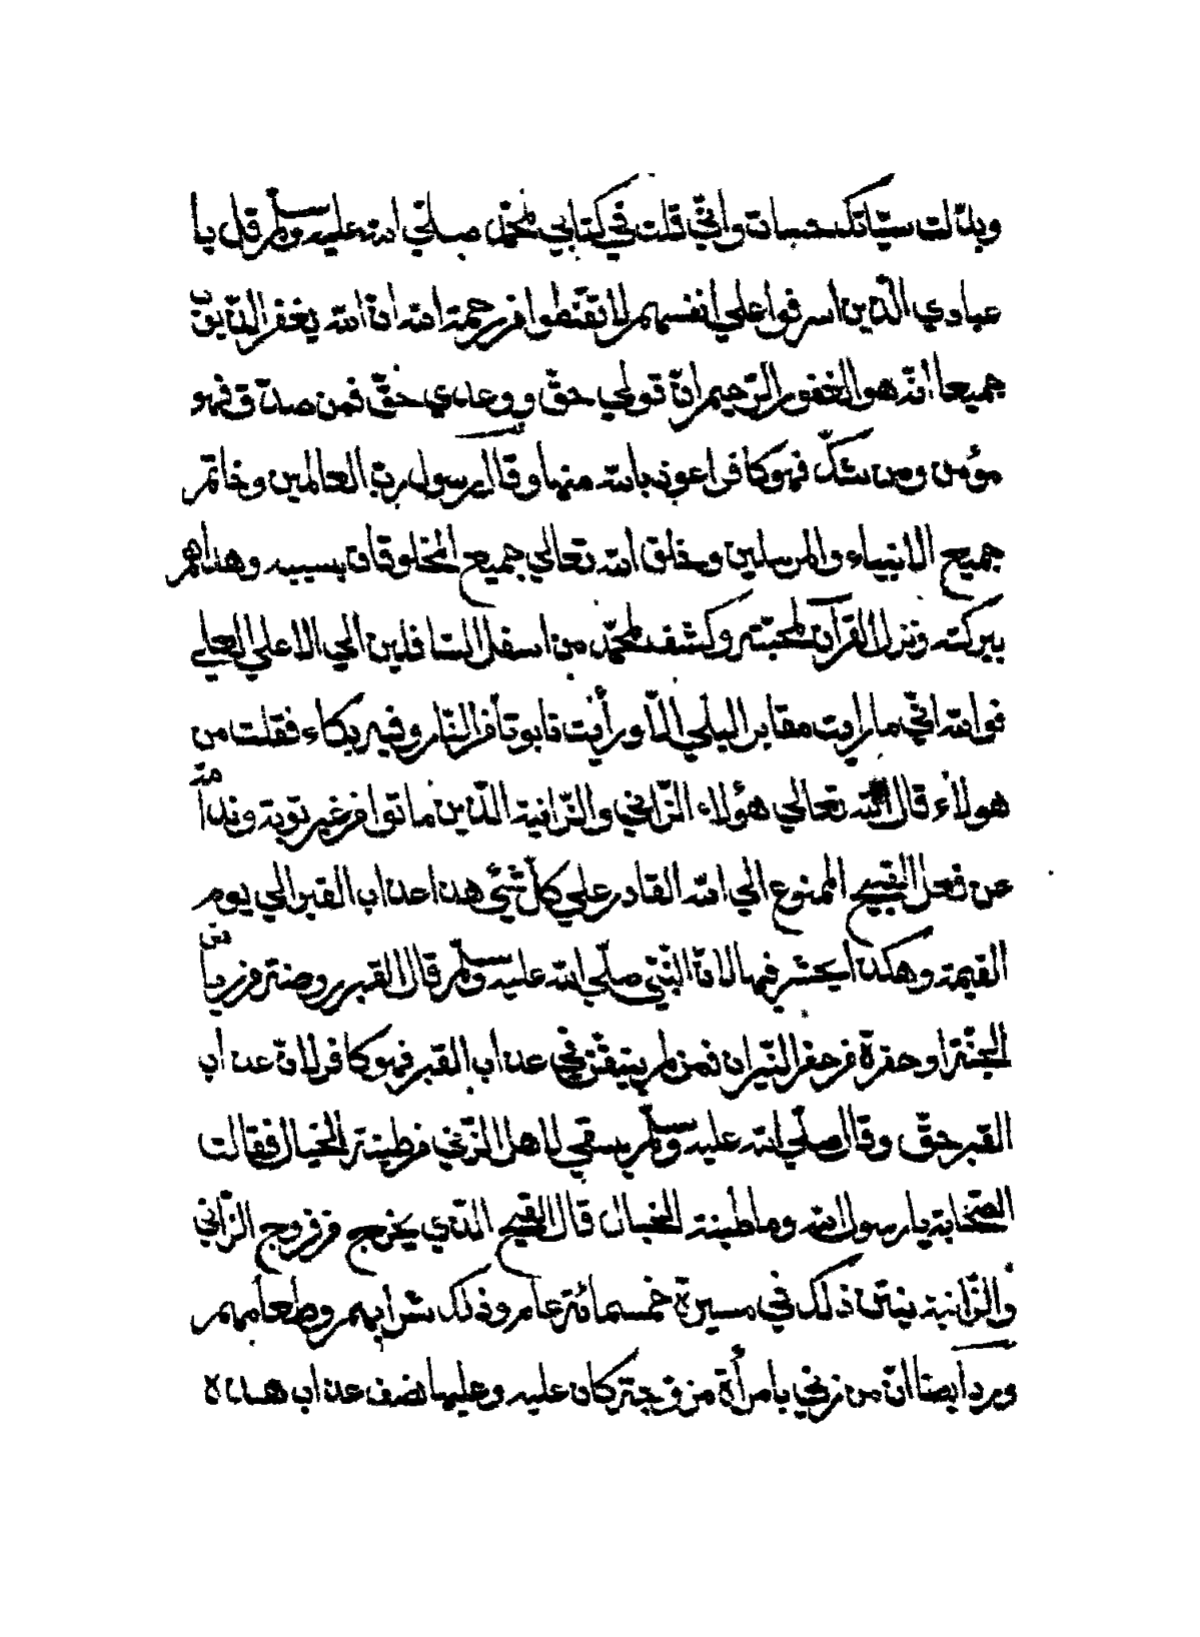 وبدّلت سيّاتك حسنات وانّي قلت في كتابي لمحمّد صلّي الله عليه وسلّم قل يا
عبادي الّذين اسرفوا علي انفسهم لا تقنّطوا من رحمة الله انّ الله يغفر الذنوب
جميعا انّه هو الغفور الرّحيم انّ قولي حقّ ووعدي حقّ فمن صدّق فهو
مؤمن ومن شكّ فهو كافر اعوذ بالله منها وقال رسول ربّ العالمين وخاتم
جميع الانبياء والمرسلين وخلق الله تعالي جميع المخلوقات بسببه وهداهم
ببركته ونزل القرآن لمحبّته وكشف لمحمّد من اسفل السّافلين الي الاعلي العلي
فوالله انّي ما رايت مقابر البلي الّا ورأيت تابوتا من النّار وفيه بكاء فقلت من
هولاء قال الله تعالي هؤلاء الزّاني والزّانية الّذين ماتوا من غير توبة وندامة
عن فعل القبيح الممنوع الي الله القادر علي كلّ شيّ هذا عذاب القبر الي يوم
القيمة وهكذا يحشر فيها لانّ النّبيّ صلّي الله عليه وسلّم قال القبر روضة من رياض
الجنّة او حفرة من حفر النّيران فمن لم يتيقّن في عذاب القبر فهو كافر لانّ عذاب
القبر حقّ وقال صلّي الله عليه وسلّم يسقي لاهل الزّني من طينة الخبال فقالت
الصّحابة يا رسول الله وما طينة الخبال قال القيح الّذي يخرج من فروج الزّاني
والزّانية ينتن ذلك في مسيرة خمسمائة عام وذلك شرابهم وطعامهم
ورد ايضا انّ من زني بامرأة مزوجة كان عليه وعليها نصف عذاب هذه